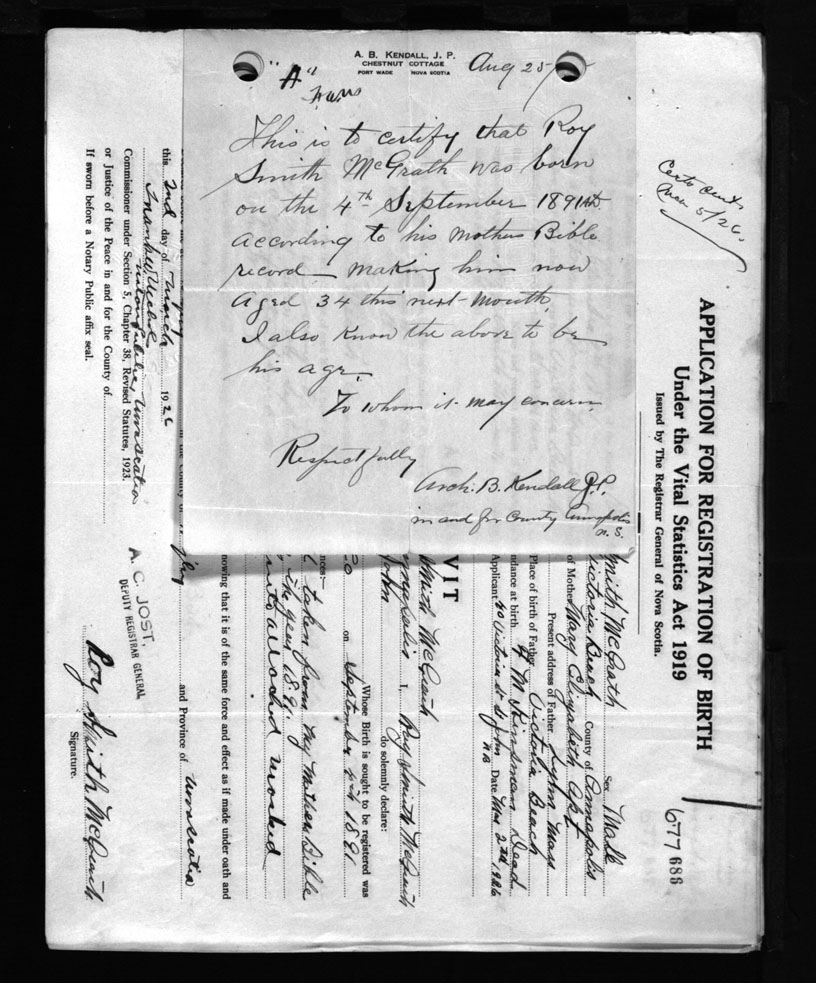 A. B. KENDALL, J. P.
CHESTNUT COTTAGE
PORT WADE NOVA SCOTIA
Aug 25
"A"
This is to certify that Roy
Smith McGrath was born
on the 4th September 1891
according to his mothers Bible
record making him now
aged 34 this next month.
I also know the above to be
his age.
To whom it may concern
Respectfully
Arch. B. Kendall J.P.
in and for County Annapolis
N. S.
5/26.
APPLICATION FOR REGISTRATION OF BIRTH
Under the Vital Statistics Act 1919
Issued by The Registrar General of Nova Scotia.
677 686
Smith McGrath Sex Male
Victoria Beach County of Annapolis
of Mother Mary Elizabeth
Present address of Father Lynn Mass
Place of birth of Father Victoria Beach
ndance at birth Kinsman Dead
Applicant Victoria St St John N.B. Date Mar 2nd 1926
VIT
Smith McGrath
I, Roy Smith McGrath
John do solemnly declare:
Whose Birth is sought to be registered was
on September 4th 1891
nces:—
taken from my Mothers Bible
in the year 1891.
attached marked
nowing that it is of the same force and effect as if made under oath and
in the County of
and Province of Nova Scotia
this 2nd day of March 1926
Commissioner under Section 5, Chapter 38, Revised Statutes, 1923.
or Justice of the Peace in and for the County of
If sworn before a Notary Public affix seal.
A. C. JOST,
DEPUTY REGISTRAR GENERAL
Roy Smith McGrath
Signature.